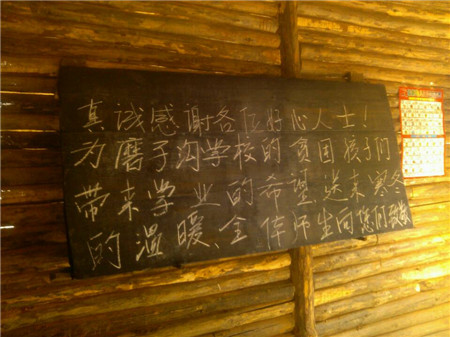 真诚感谢各位好心人士！
为磨子沟学校的贫困孩子们
带来学业的希望，送来寒冬
的温暖、全体师生向您们致敬